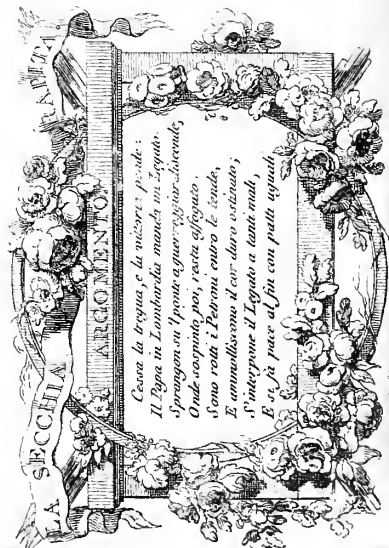 LA SECCHIA RAPITA
ARGOMENTO
Cessa la tregua; e la vittoria pende:
Il Papa in Lombardia manda un Legato.
Sprangon su 'l ponte a guerreggiar discende,
Onde sospinto poi, resta affogato
Sono rotti i Petroni entro le tende,
E ammolliscono il cor duro ostinato;
S'interpone il Legato a tanti mali,
E si fà pace al fin con patti eguali.